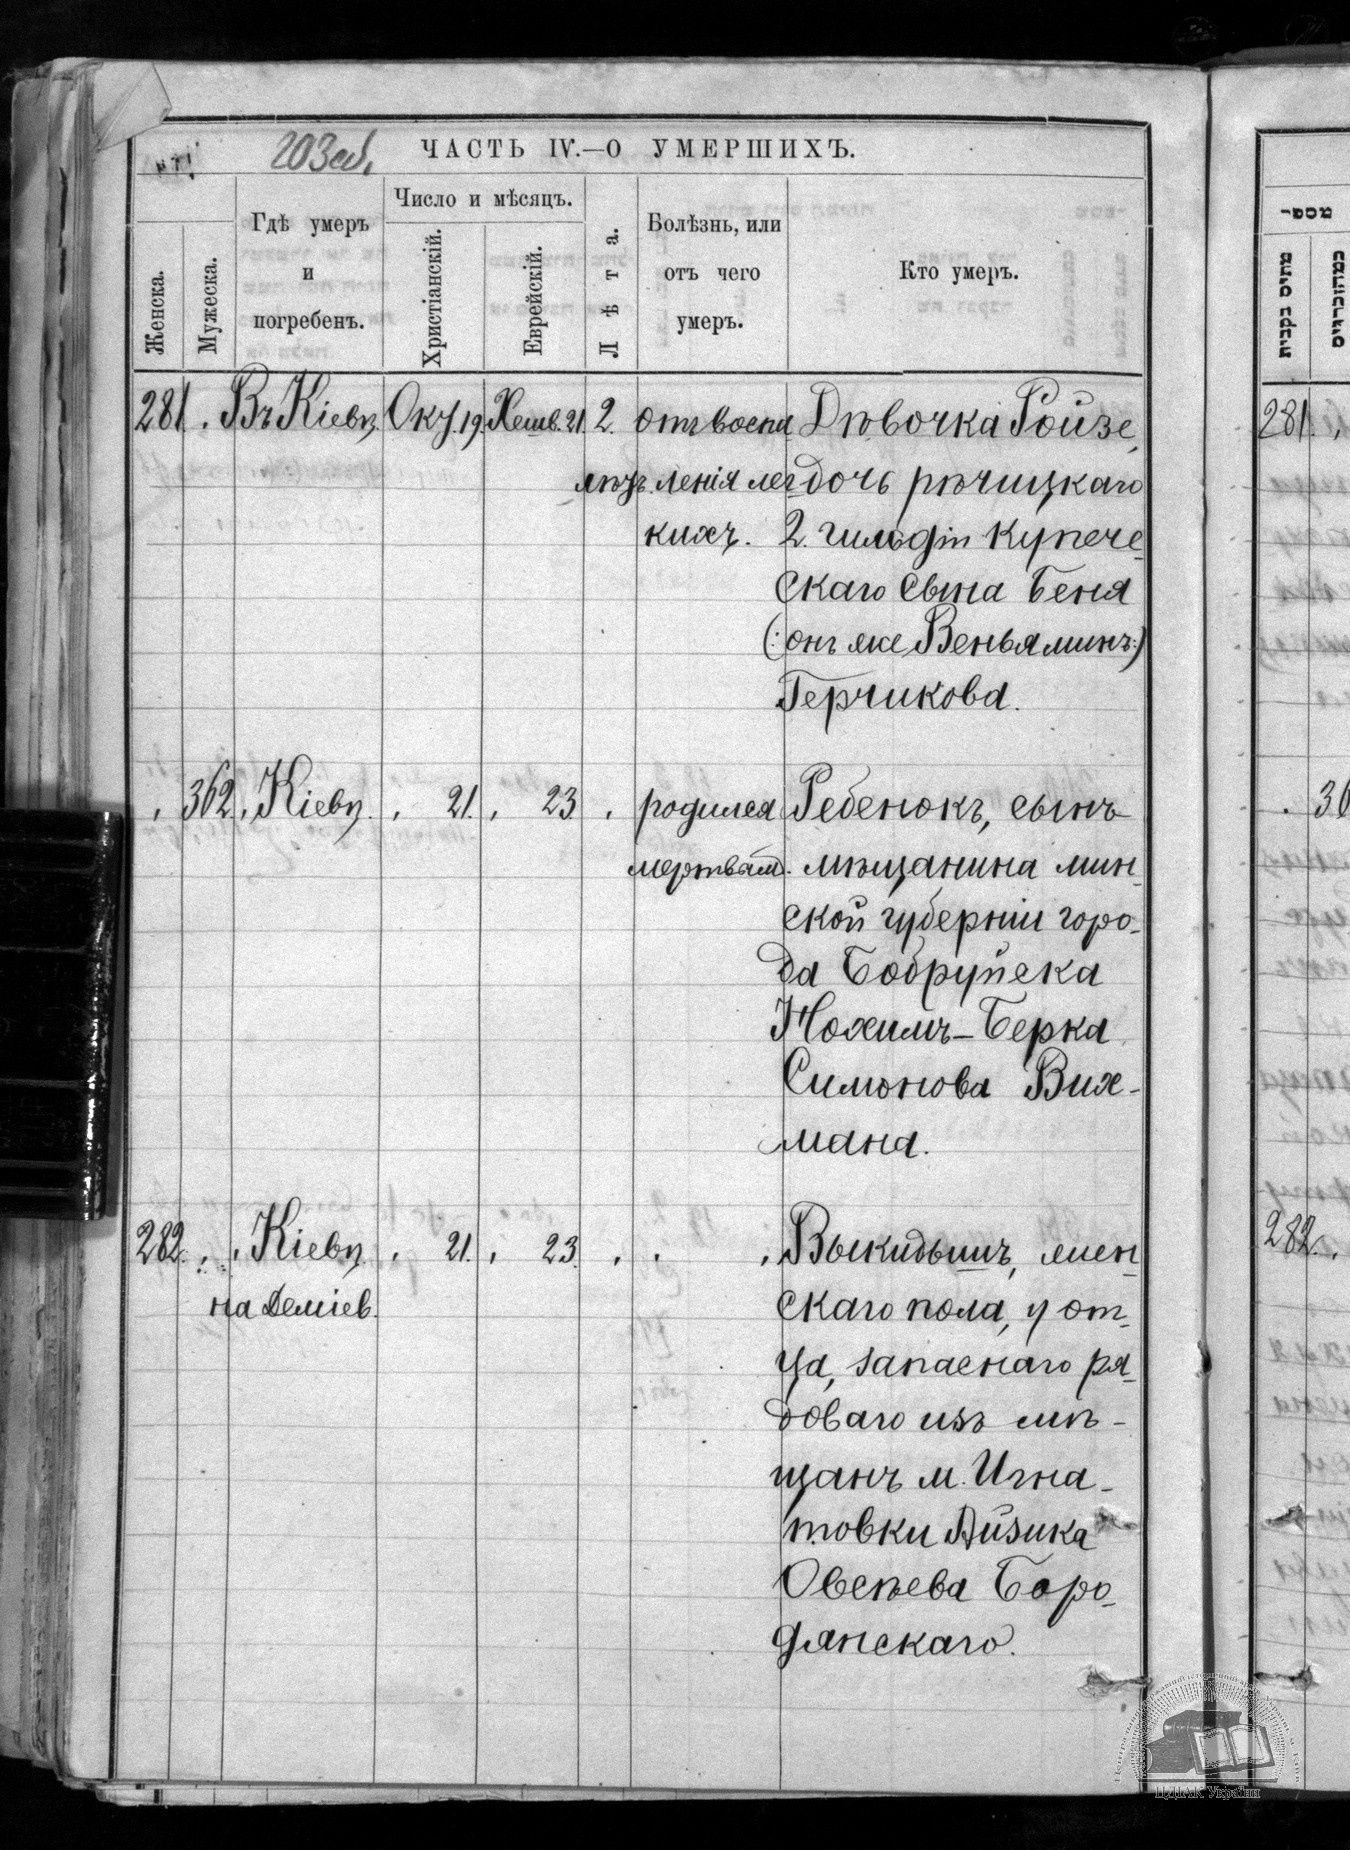 203 об.
ЧАСТЬ IV.—О УМЕРШИХЪ.
Женска.
Мужеска.
Гдѣ умеръ
и
погребенъ.
Число и мѣсяцъ.
Христіанскій.
Еврейскій.
Лѣта.
Болѣзнь, или
отъ чего
умеръ.
Кто умеръ.
281. Въ Кіевѣ Окт. 19. Хешв. 21. 2. отъ воспа Дѣвочка Ройзе,
лѣтъ. ленія лег дочь рѣчицкаго
кихъ. 2. гильдіи купече-
скаго сына Беня
(: онъ же Веньяминъ :)
Герчикова.
362. Кіевѣ. 21. 23. родился Ребенокъ, сынъ
мертвым. мѣщанина мин-
ской губерніи горо-
да Бобруйска
Нохимъ-Берка
Симонова Вих-
мана.
282. Кіевѣ 21. 23. Выкидышъ, жен-
на Деміев. скаго пола, у от-
ца, запаснаго ря-
доваго изъ мѣ-
щанъ м. Игна-
товки Айзика
Овсѣева Боро-
дянскаго.
מספר
מהנקבות
מהזכרים
281.
36
282.
ЦДІАК України